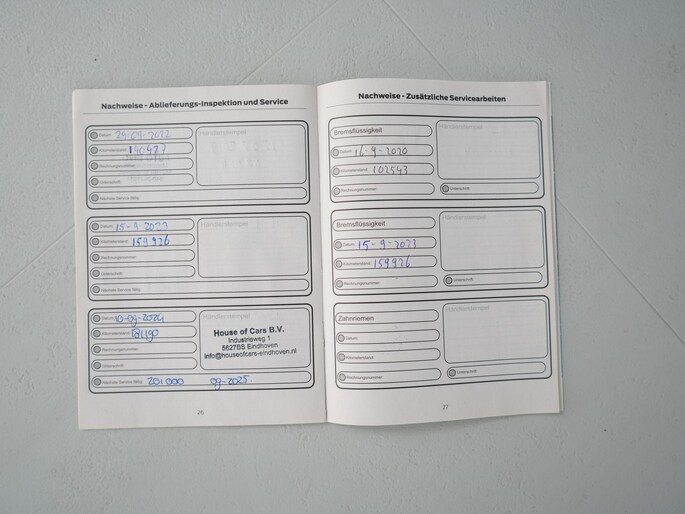 Nachweise - Ablieferungs-Inspektion und Service
Datum 29-09-2022
Händlerstempel
Kilometerstand 140427
Rechnungsnummer
Unterschrift
Nächste Service fällig
Datum 15-9-2023
Händlerstempel
Kilometerstand 159926
Rechnungsnummer
Unterschrift
Nächste Service fällig
Datum 10-09-2024
Händlerstempel
Kilometerstand
Rechnungsnummer
Unterschrift
House of Cars B.V.
Industrieweg 1
5627BS Eindhoven
info@houseofcars-eindhoven.nl
Nächste Service fällig 201000 09-2025
26
Nachweise - Zusätzliche Servicearbeiten
Bremsflüssigkeit
Händlerstempel
Datum 16-9-2020
Kilometerstand 102543
Rechnungsnummer
Unterschrift
Bremsflüssigkeit
Händlerstempel
Datum 15-9-2023
Kilometerstand 159926
Rechnungsnummer
Unterschrift
Zahnriemen
Händlerstempel
Datum
Kilometerstand
Rechnungsnummer
Unterschrift
27